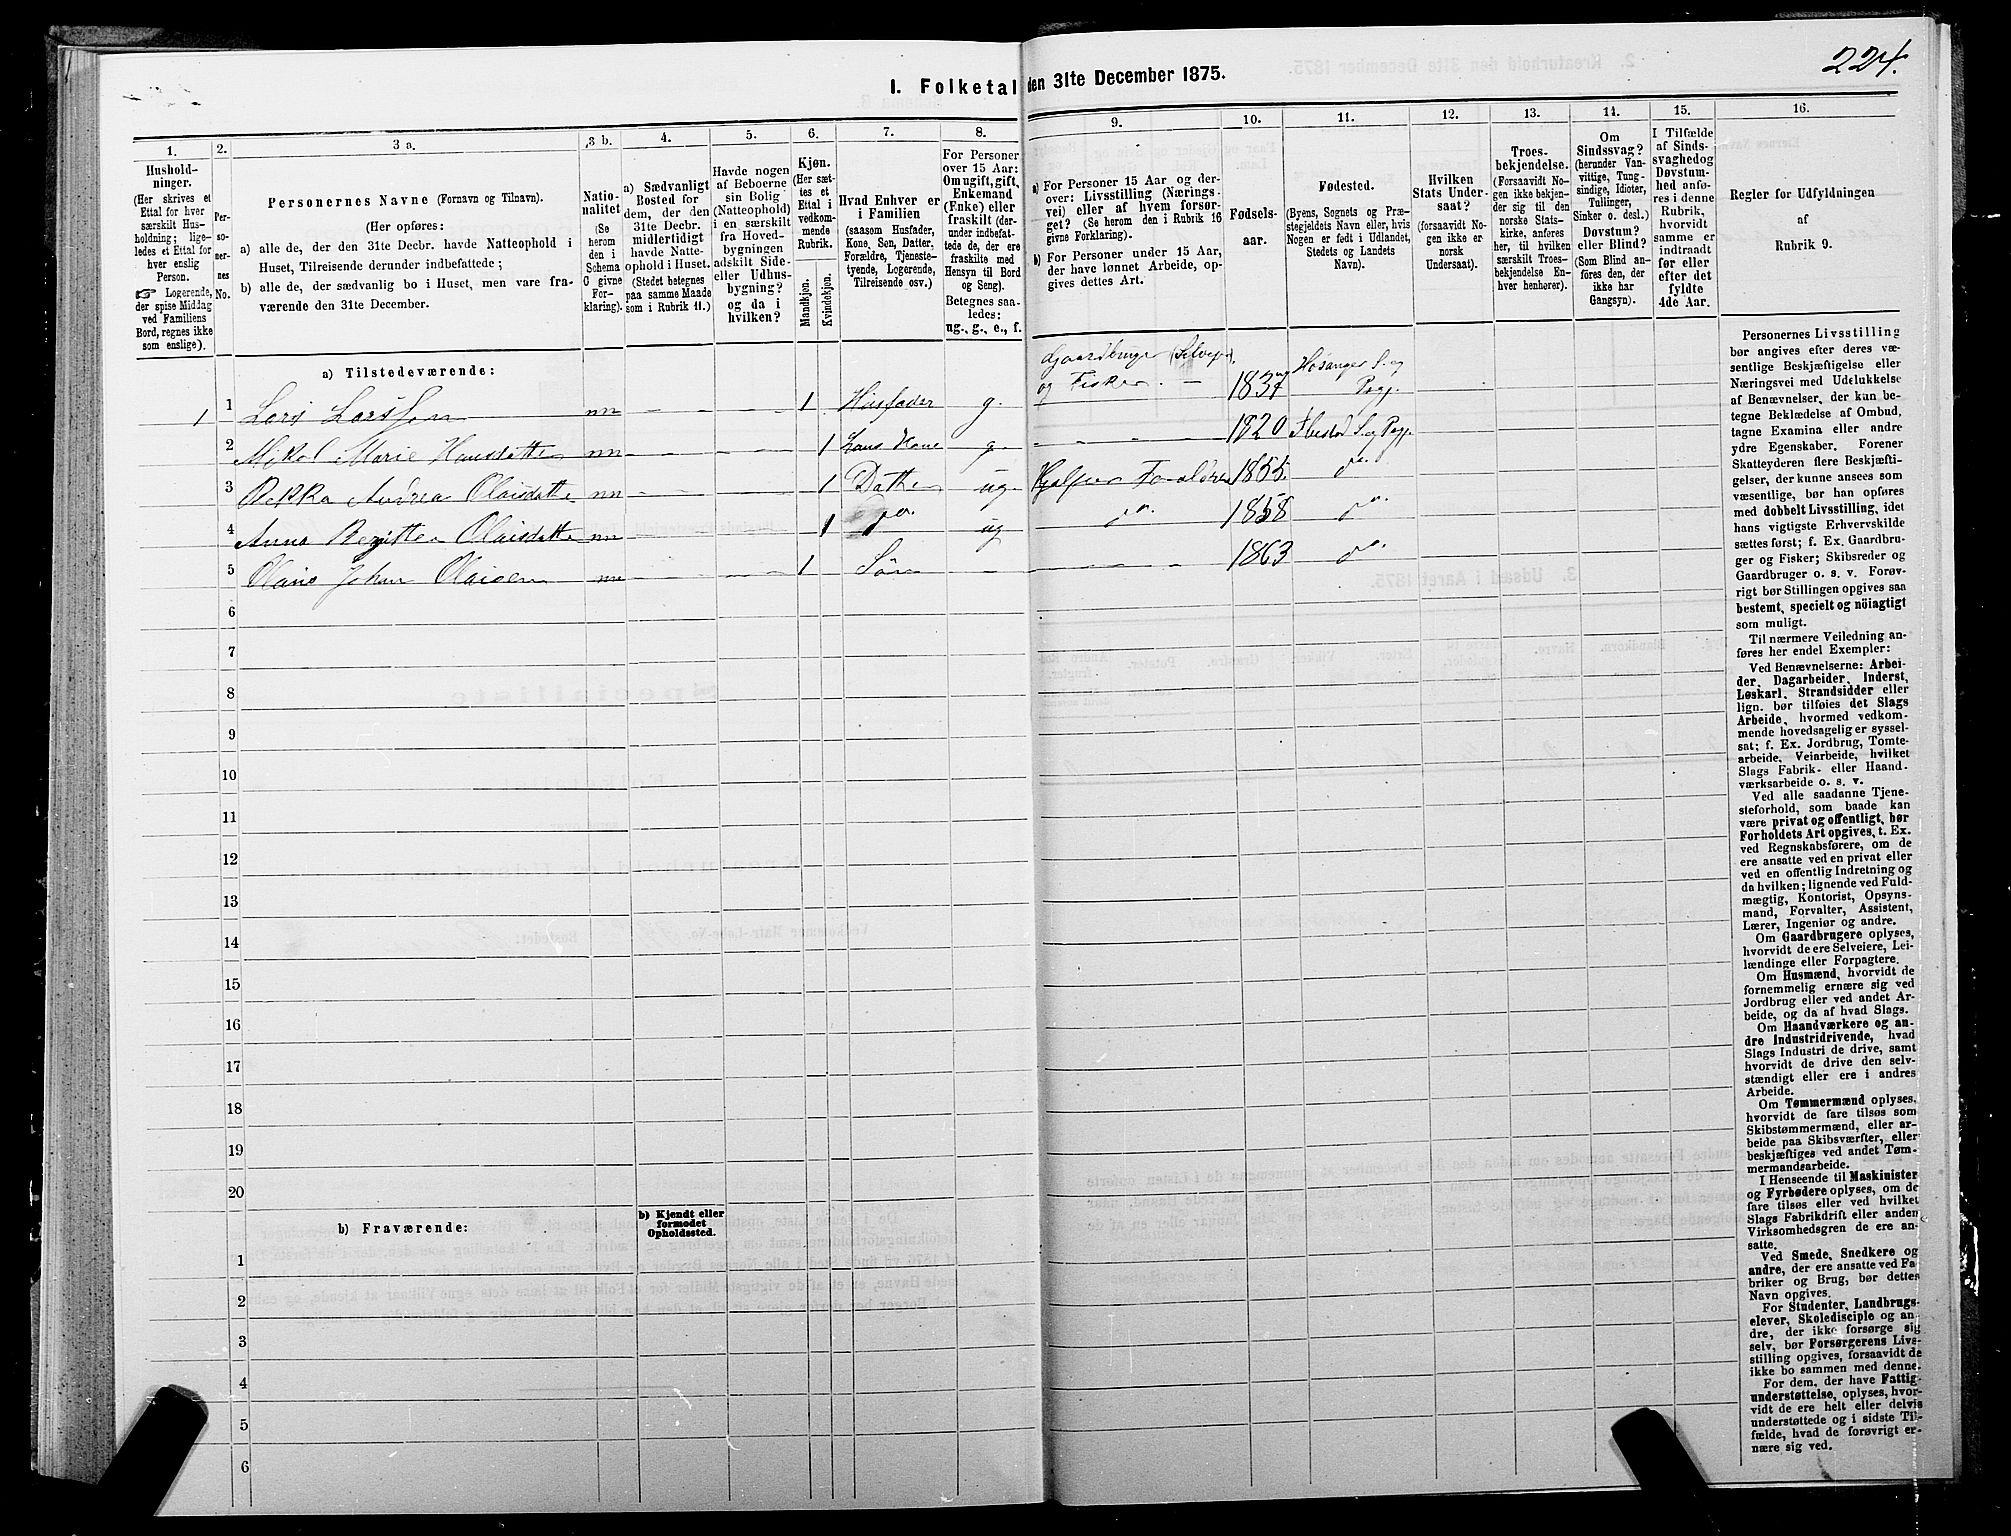 224.
I. Folketal den 31te December 1875.
1.
Hushold-
ninger.
(Her skrives et
Ettal for hver
særskilt Hus-
holdning; lige-
ledes et Ettal for
hver enslig
Person.
☞ Logerende,
der spise Middag
ved Familiens
Bord, regnes ikke
som enslige).
2.
Per-
so-
ner-
nes
No.
3 a.
Personernes Navne (Fornavn og Tilnavn).
(Her opføres:
a) alle de, der den 31te Decbr. havde Natteophold i
Huset, Tilreisende derunder indbefattede;
b) alle de, der sædvanlig bo i Huset, men vare fra-
værende den 31te December.
3 b.
Natio-
nalitet
(Se
herom
den i
Schema
C givne
For-
klaring).
4.
a) Sædvanligt
Bosted for
dem, der den
31te Decbr.
midlertidigt
havde Natte-
ophold i Huset.
(Stedet betegnes
paa samme Maade
som i Rubrik 11.)
5.
Havde nogen
af Beboerne
sin Bolig
(Natteophold)
i en særskilt
fra Hoved-
bygningen
adskilt Side-
eller Udhus-
bygning?
og da i
hvilken?
6.
Kjøn.
(Her sæt-
tes et
Ettal i
vedkom-
mende
Rubrik.
Mandkjøn.
Kvindekjøn.
7.
Hvad Enhver er
i Familien
(saasom Husfader,
Kone, Søn, Datter,
Forældre, Tjeneste-
tyende, Logerende,
Tilreisende osv.)
8.
For Personer
over 15 Aar:
Om ugift, gift,
Enkemand
(Enke) eller
fraskilt (der-
under indbefat-
tede de, der ere
fraskilte med
Hensyn til Bord
og Seng).
Betegnes saa-
ledes:
ug., g., e., f.
9.
a) For Personer 15 Aar og der-
over: Livsstilling (Nærings-
vei) eller af hvem forsør-
get? (Se herom den i Rubrik 16
givne Forklaring).
b) For Personer under 15 Aar,
der have lønnet Arbeide, op-
gives dettes Art.
10.
Fødsels-
aar.
11.
Fødested.
(Byens, Sognets og Præ-
stegjeldets Navn eller, hvis
Nogen er født i Udlandet,
Stedets og Landets
Navn).
12.
Hvilken
Stats Under-
saat?
(forsaavidt No-
gen ikke er
norsk
Undersaat).
13.
Troes-
bekjendelse.
(Forsaavidt No-
gen ikke bekjen-
der sig til den
norske Stats-
kirke, anføres
her, til hvilken
særskilt Troes-
bekjendelse En-
hver henhører).
14.
Om
Sindssvag?
(herunder Van-
vittige, Tung-
sindige, Idioter,
Tullinger,
Sinker o. desl.)
Døvstum?
eller Blind?
(Som Blind an-
føres den, der
ikke har
Gangsyn).
15.
I Tilfælde
af Sinds-
svaghed og
Døvstum-
hed anfø-
res i denne
Rubrik,
hvorvidt
samme er
indtraadt
før eller
efter det
fyldte
4de Aar.
16.
Regler for Udfyldningen
af
Rubrik 9.
a) Tilstedeværende:
1 1 Lars Larssen nn — — 1 Husfader g. Gaardbruger (Selveier) og Fisker. — 1837 Hosanger S. og Pgj.
2 Mikal Marie Hansdatter nn — — 1 Hans Kone g. — — 1820 Ibestad S. og Pgj.
3 Rekka Andrea Olaisdatter nn — — 1 Datter ug. Hjelper Forældrene 1855. do.
4 Anne Birgitte Olaisdatter nn — — 1 do. ug do. 1858 do.
5 Olaus Johan Olaisen nn — — 1 Søn — — — 1863 do.
6
7
8
9
10
11
12
13
14
15
16
17
18
19
20
b) Fraværende:
b) Kjendt eller
formodet
Opholdssted.
1
2
3
4
5
6
Personernes Livsstilling
bør angives efter deres væ-
sentlige Beskjæftigelse eller
Næringsvei med Udelukkelse
af Benævnelser, der kun be-
tegne Beklædelse af Ombud,
tagne Examina eller andre
ydre Egenskaber. Forener
Skatteyderen flere Beskjæfti-
gelser, der kunne ansees som
væsentlige, bør han opføres
med dobbelt Livsstilling, idet
hans vigtigste Erhvervskilde
sættes først; f. Ex. Gaardbru-
ger og Fisker; Skibsreder og
Gaardbruger o. s. v. Forøv-
rigt bør Stillingen opgives saa
bestemt, specielt og nöiagtigt
som muligt.
Til nærmere Veiledning an-
føres her endel Exempler:
Ved Benævnelserne: Arbei-
der, Dagarbeider, Inderst,
Løskarl, Strandsidder eller
lign. bør tilføies det Slags
Arbeide, hvormed vedkom-
mende hovedsagelig er syssel-
sat; f. Ex. Jordbrug, Tomte-
arbeide, Veiarbeide, hvilket
Slags Fabrik- eller Haand-
værksarbeide o. s. v.
Ved alle saadanne Tjene-
steforhold, som baade kan
være privat og offentligt, bør
Forholdets Art opgives, t. Ex.
ved Regnskabsførere, om de
ere ansatte ved en privat eller
ved en offentlig Indretning og
da hvilken; lignende ved Fuld-
mægtig, Kontorist, Opsyns-
mand, Forvalter, Assistent,
Lærer, Ingeniør og andre.
Om Gaardbrugere oplyses,
hvorvidt de ere Selveiere, Lei-
lændinge eller Forpagtere.
Om Husmænd, hvorvidt de
fornemmelig ernære sig ved
Jordbrug eller ved andet Ar-
beide, og da af hvad Slags.
Om Haandværkere og an-
dre Industridrivende, hvad
Slags Industri de drive, samt
hvorvidt de drive den selv-
stændigt eller ere i andres
Arbeide.
Om Tømmermænd oplyses,
hvorvidt de fare tilsøs som
Skibstømmermænd, eller ar-
beide paa Skibsværfter, eller
beskjæftiges ved andet Tøm-
mermandsarbeide.
I Henseende til Maskinister
og Fyrbødere oplyses, om de
fare tilsøs eller ved hvilket
Slags Fabrikdrift eller anden
Virksomhedsgren de ere an-
satte.
Ved Smede, Snedkere og
andre, der ere ansatte ved Fa-
briker og Brug, bør dettes
Navn opgives.
For Studenter, Landbrugs-
elever, Skoledisciple og an-
dre, der ikke forsørge sig
selv, bør Forsørgerens Livs-
stilling opgives, forsaavidt de
ikke bo sammen med denne.
For dem, der have Fattig-
understøttelse, oplyses, hvor-
vidt de ere helt eller delvis
understøttede og i sidste Til-
fælde, hvad de forøvrigt er-
nære sig ved.